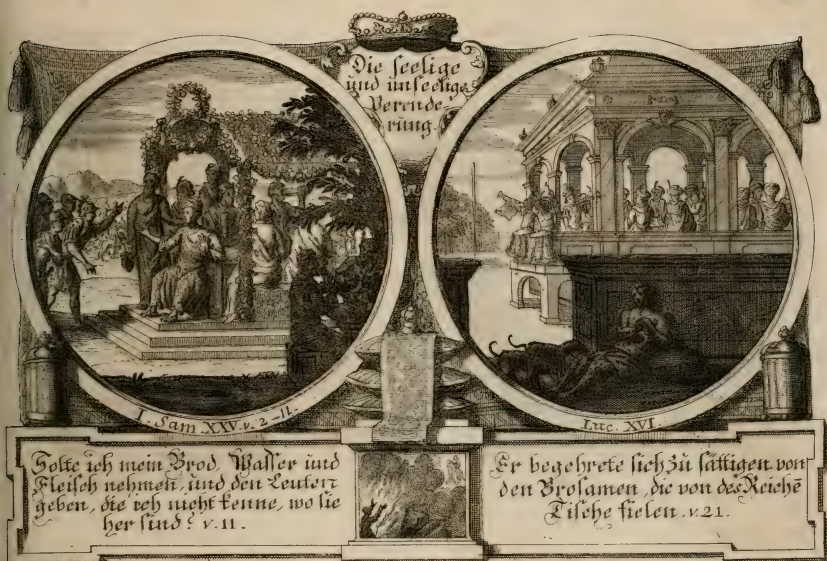 Die seelige
und unseelige
Verende-
rung.
I. Sam XXV. v. 2-11.
Luc. XVI.
Solte ich mein Brod, Wasser und
Fleisch nehmen, und den Leuten
geben, die ich nicht kenne, wo sie
her sind? v. 11.
Er begehrete sich zu sättigen von
den Brosamen, die von des Reichē
Tische fielen. v. 21.